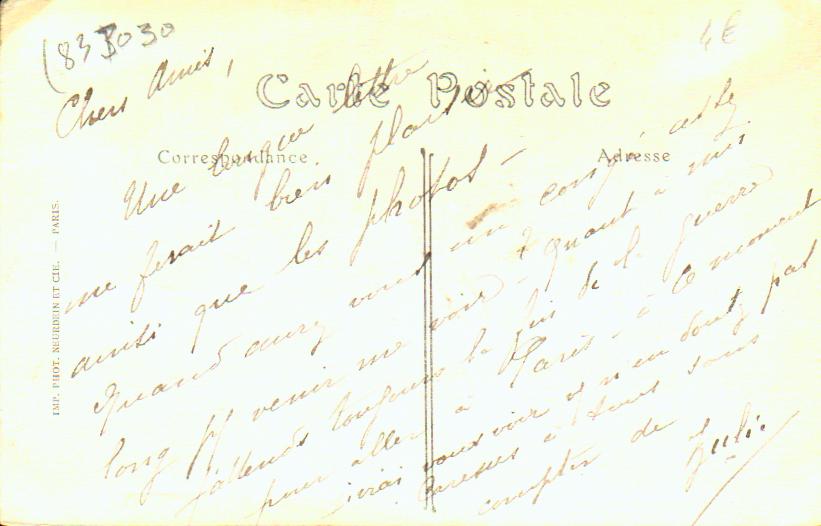 (83 3030
4€
Carte Postale
Correspondance
Adresse
IMP. PHOT. NEURDEIN ET CIE. — PARIS.
Chers Amis,
Une longue lettre
me ferait bien plaisir
ainsi que les photos —
Quand aurez vous un congé assez
long pr venir me voir ? Quant à moi
j'attends toujours la fin de la guerre
pour aller à Paris — à ce moment
j'irai vous voir et n'en doutez pas
Caresses à tous sans
compter de
Julie